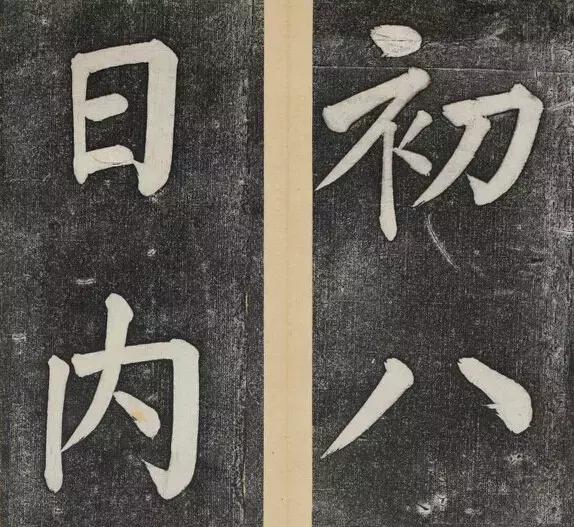 初八
日内